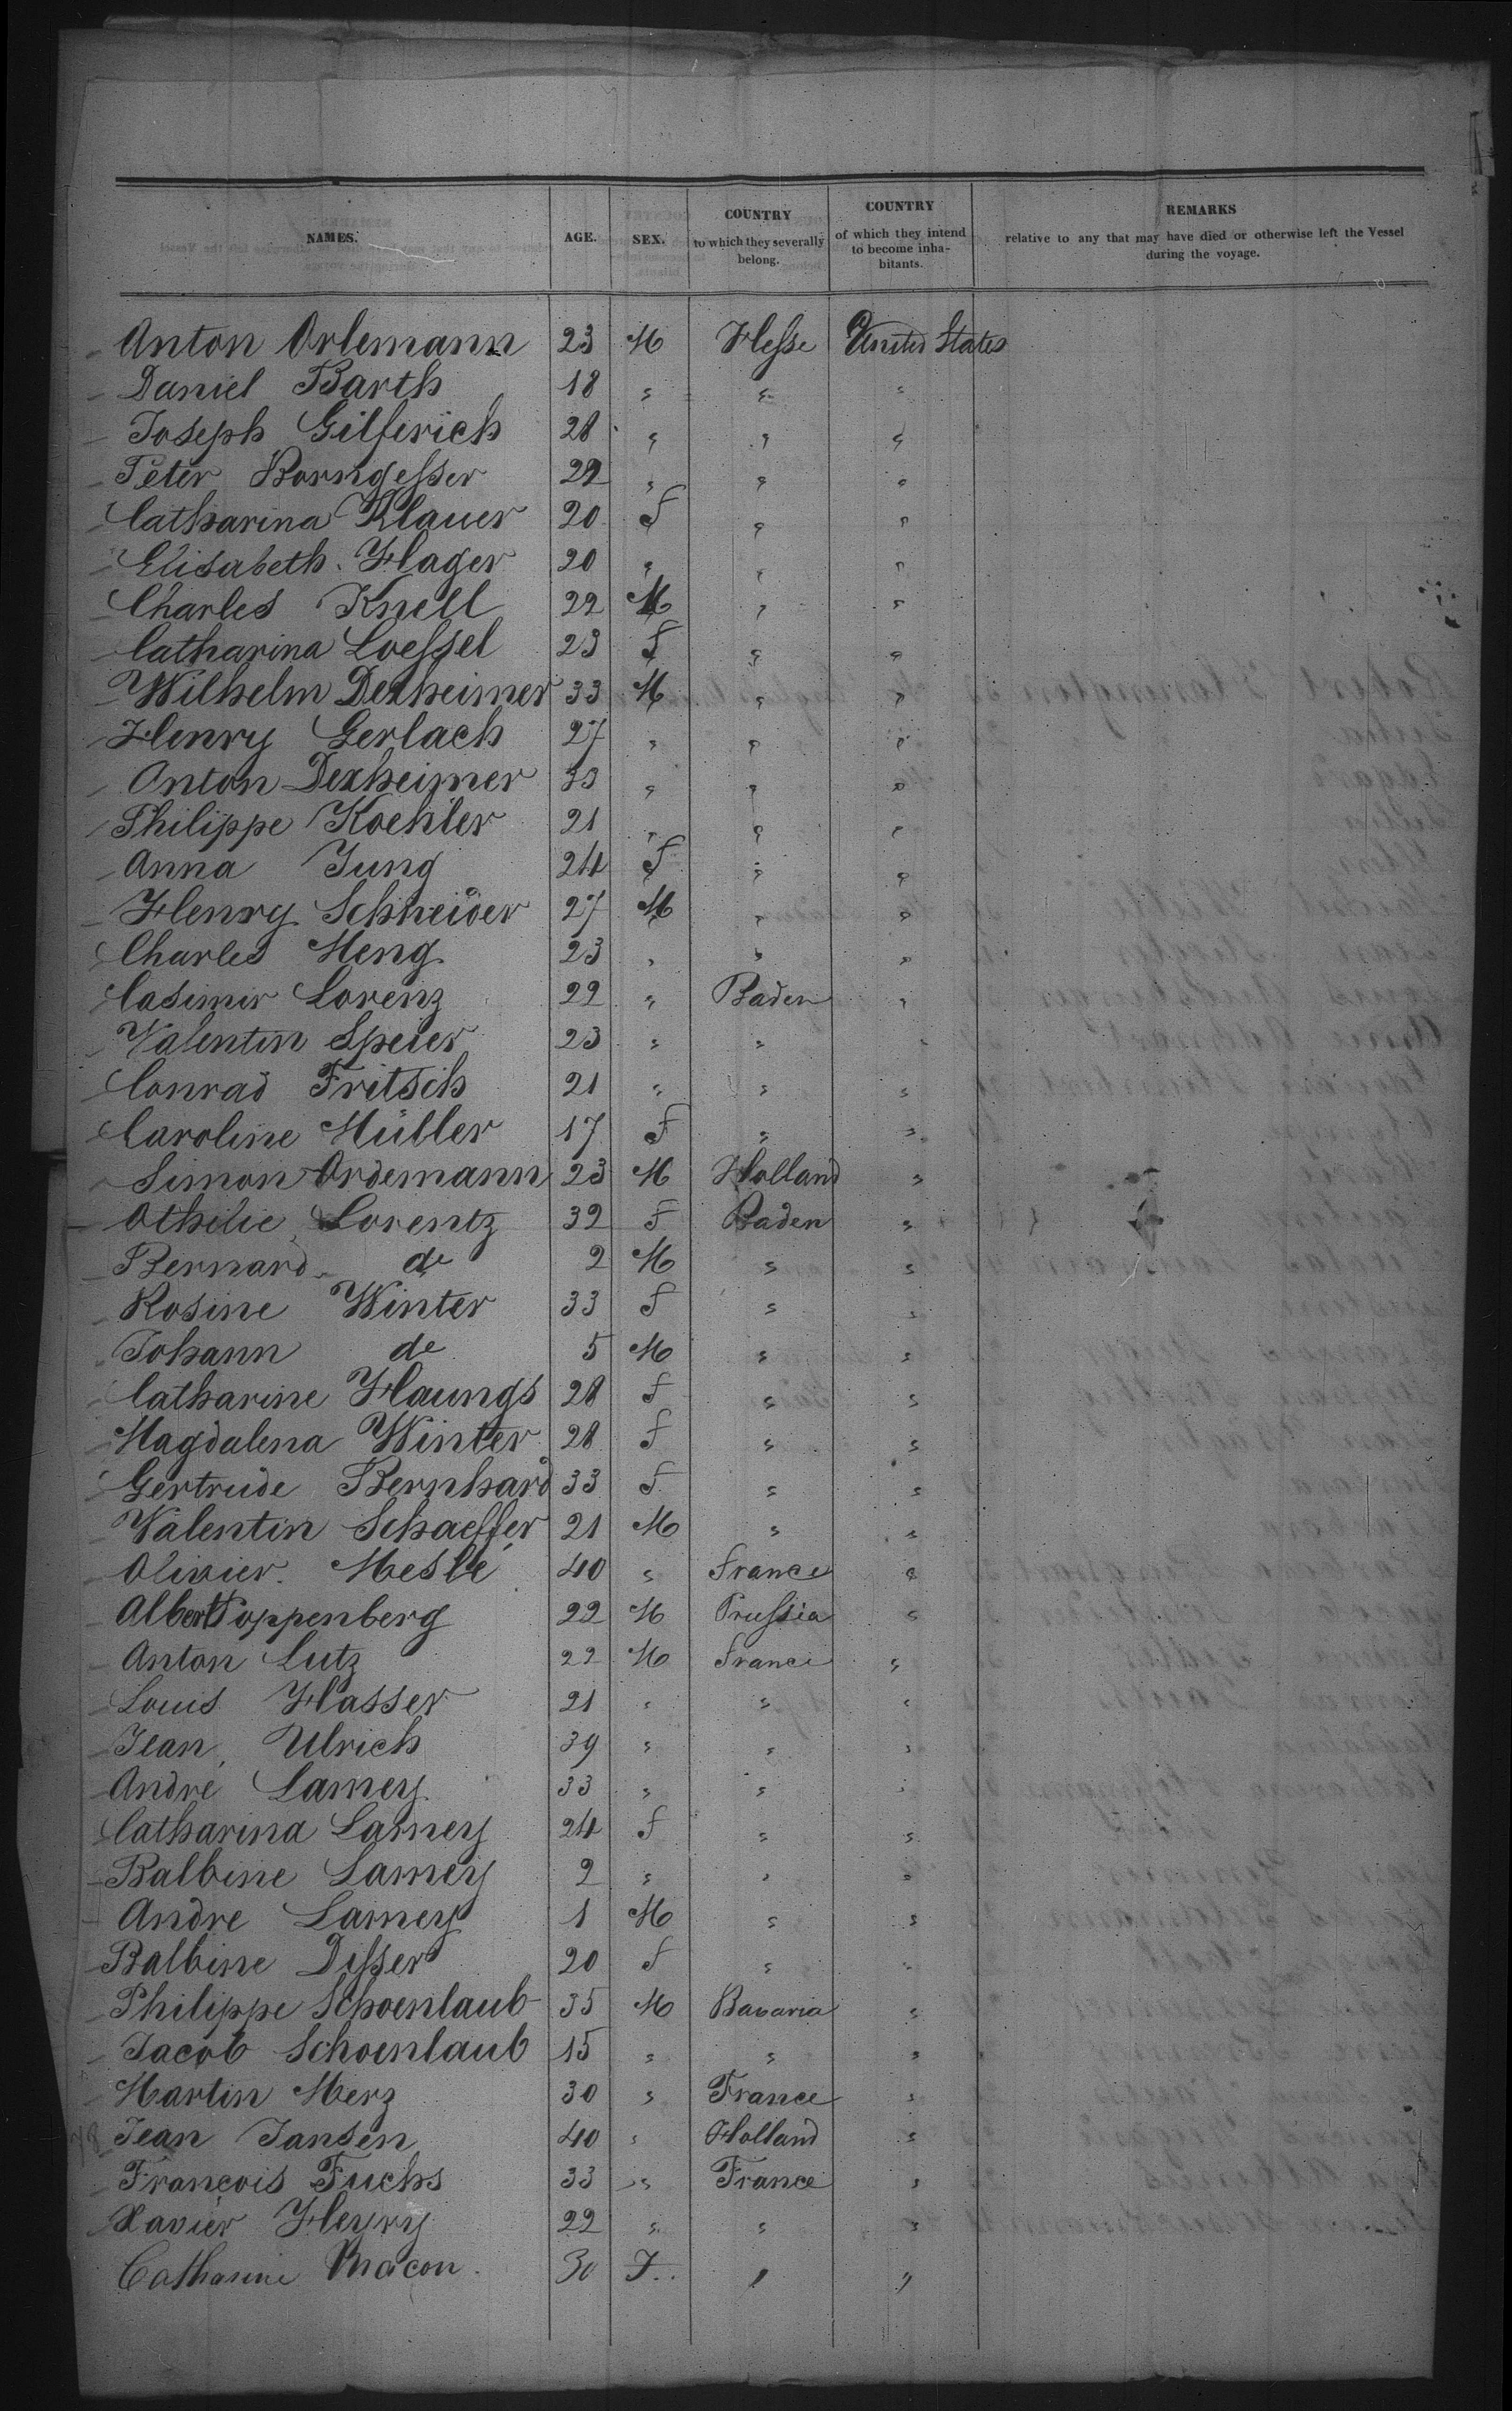 NAMES. AGE. SEX. COUNTRY to which they severally belong. COUNTRY of which they intend to become inhabitants. REMARKS relative to any that may have died or otherwise left the Vessel during the voyage.
Anton Orlemann 23 M Hesse United States
Daniel Barth 18 " " "
Joseph Gilferich 28 " " "
Peter Borngesser 22 " " "
Catharina Klauer 20 F " "
Elisabeth Hager 20 " " "
Charles Knell 22 M " "
Catharina Loessel 23 F " "
Wilhelm Dexheimer 33 M " "
Henry Gerlach 27 " " "
Anton Dexheimer 33 " " "
Philippe Koehler 21 " " "
Anna Jung 24 F " "
Henry Schneider 27 M " "
Charles Meng 23 " " "
Casimir Lorenz 22 " Baden "
Valentin Speier 23 " " "
Conrad Fritsch 21 " " "
Caroline Müller 17 F " "
Simon Ordemann 23 M Holland "
Othilie Lorentz 32 F Baden "
Bernard do 2 M " "
Rosine Winter 33 F " "
Johann do 5 M " "
Catharine Haungs 28 F " "
Magdalena Winter 28 F " "
Gertrude Bernhard 33 F " "
Valentin Schaeffer 21 M " "
Olivier Meslé 40 " France "
Albert Poppenberg 22 M Prussia "
Anton Lutz 22 M France "
Louis Hasser 21 " " "
Jean Ulrich 39 " " "
André Lamey 33 " " "
Catharina Lamey 24 F " "
Balbine Lamey 2 " " "
Andre Lamey 1 M " "
Balbine Disser 20 F " "
Philippe Schoenlaub 35 M Bavaria "
Jacob Schoenlaub 15 " " "
Martin Merz 30 " France "
Jean Jansen 40 " Holland "
François Fuchs 33 " France "
Xavier Heyry 22 " " "
Catharine Macon 30 F " "